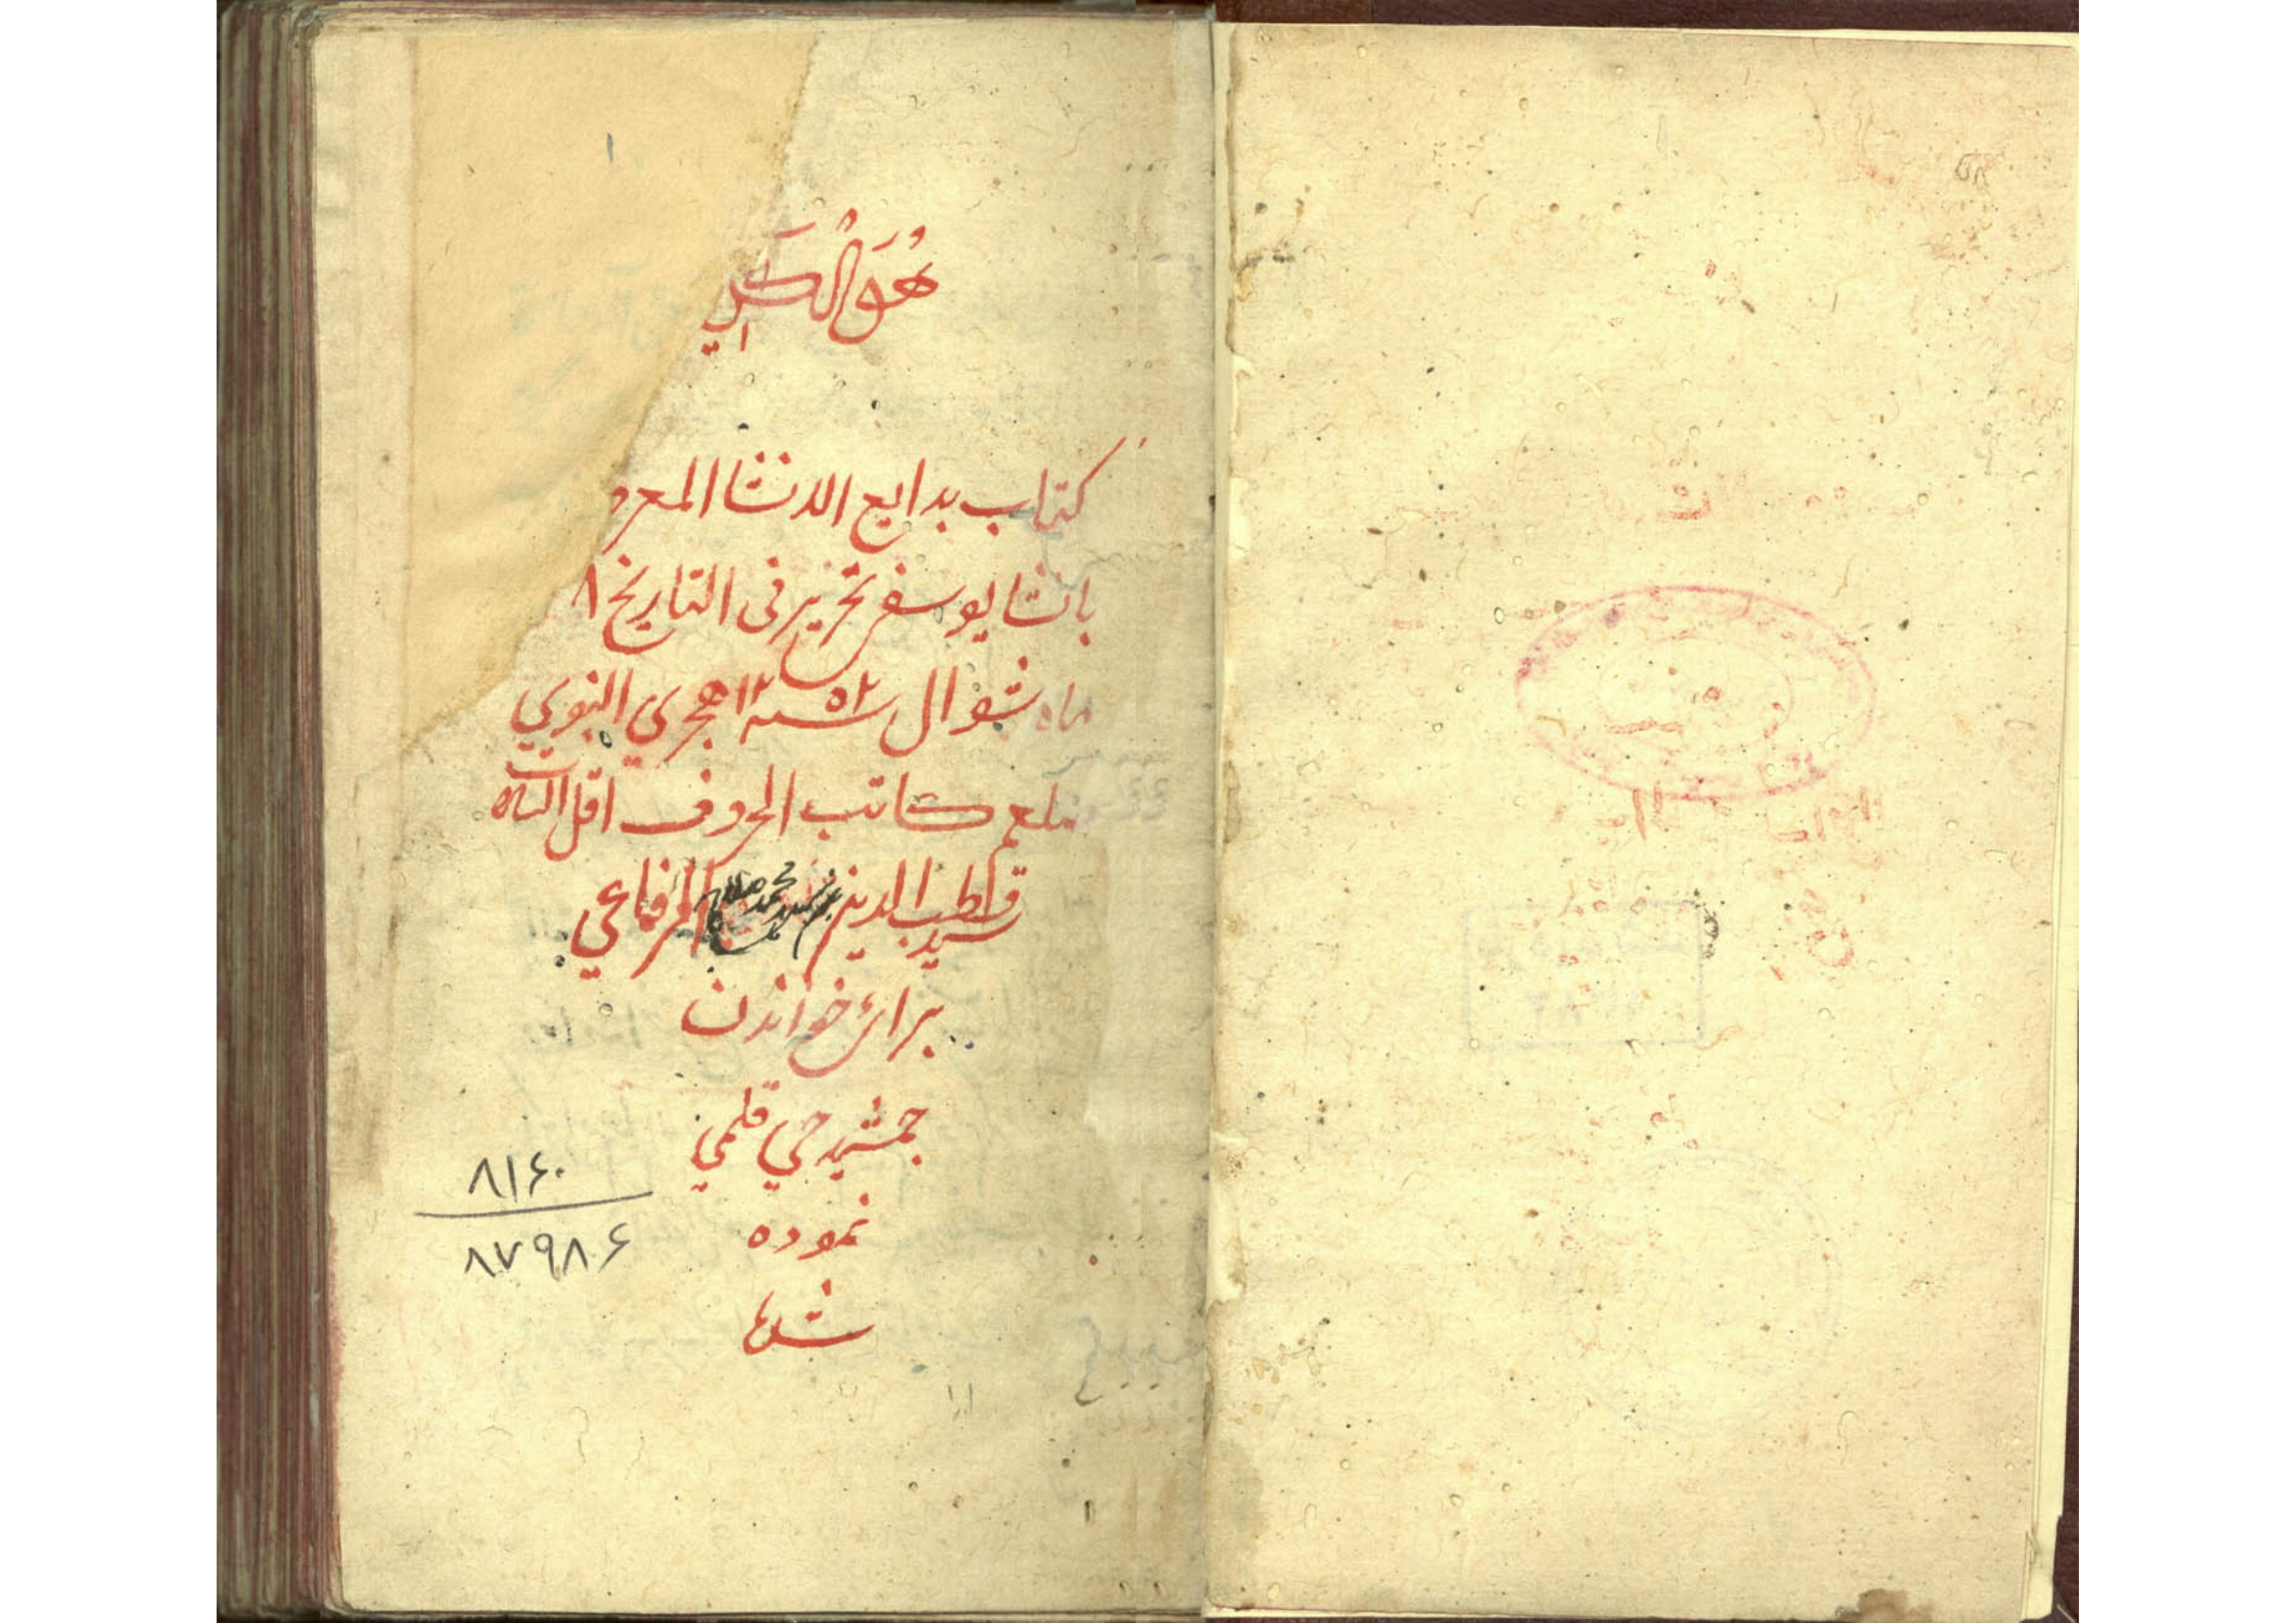 هُوَ الْكَري
کتاب بدایع الانشا المعرو
بانشا یوسفی تحریر فی التاریخ ۸
ماه شوال سنه ۱۲۵۲ هجري النبوي
کاتب الحروف اقل السادات
سید قطب الدین بن سید محمد الرفاعي
برائ خواندن
جمشید جي قلمي
نموده
شد
۸۱۶۰
۸۷۹۸۶